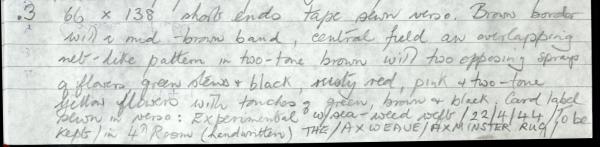 .3 66 x 138 short ends tape sewn verso. Brown border
with a mid-brown band, central field an overlapping
net-like pattern in two-tone brown with two opposing sprays
of flowers green stems & black, rusty red, pink & two-tone
yellow flowers with touches of green, brown & black. Card label
sewn on verso: Experimental w/sea-weed weft / 22/4/44 / To be
kept / in 4th Room (handwritten) THE / AXWEAVE / AXMINSTER RUG